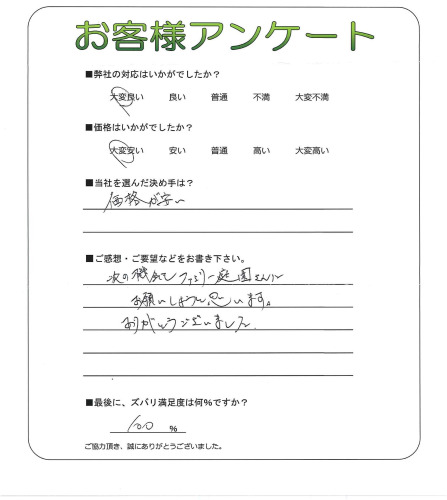 お客様アンケート
■弊社の対応はいかがでしたか？
大変良い 良い 普通 不満 大変不満
■価格はいかがでしたか？
大変安い 安い 普通 高い 大変高い
■当社を選んだ決め手は？
価格が安い
■ご感想・ご要望などをお書き下さい。
次の機会もファミリー庭園さんに
お願いしようと思います。
ありがとうございました
■最後に、ズバリ満足度は何%ですか？
100 %
ご協力頂き、誠にありがとうございました。